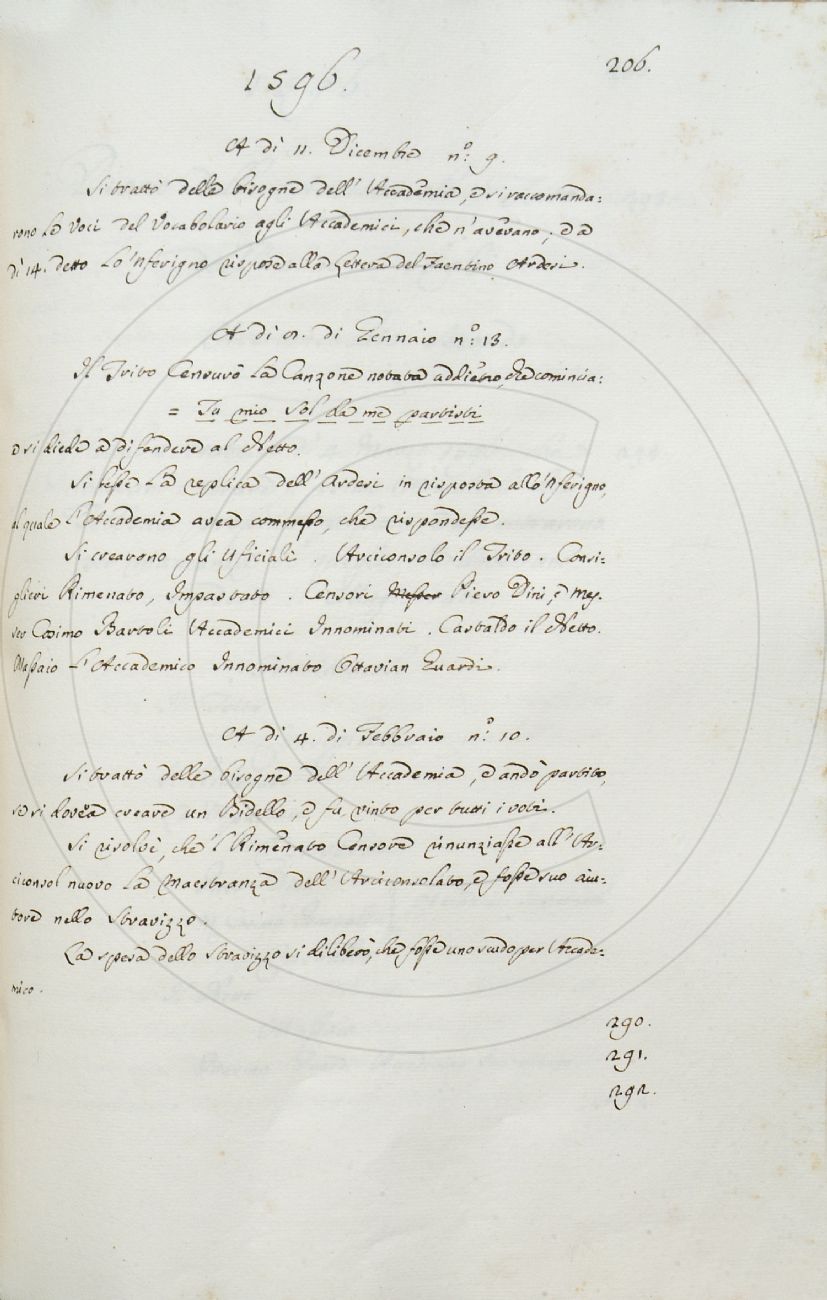 206.
1596.
A dì 11. Dicembre n.º 9.
Si trattò delle bisogne dell' Accademia, e si raccomanda:
rono le Voci del Vocabolario agli Accademici, che n'avevano; e a
dì 14. detto Lo 'nferigno rispose alla Lettera del Faentino Ardesi.
A dì 9. di Gennaio n.º 13.
Il Trito Censurò la Canzone notata addietro, che comincia:
= Tu mio Sol da me partisti
e si diede a difendere al Netto.
Si lesse la replica dell' Ardesi in risposta allo 'nferigno,
al quale l' Accademia avea commesso, che rispondesse.
Si crearono gli Uficiali. Arciconsolo il Trito. Consi:
glieri Rimenato, Impastato. Censori Messer Piero Dini, e Mes.
ser Cosimo Bartoli Accademici Innominati. Castaldo il Netto.
Massaio l' Accademico Innominato Ottavian
A dì 4. di Febbraio n.º 10.
Si trattò delle bisogne dell' Accademia, e andò partito,
se si dovea creare un Bidello, e fu vinto per tutti i voti.
Si risolvè, che 'l Rimenato Censore rinunziasse all' Ar:
ciconsol nuovo la maestranza dell' Arciconsolato, e fosse suo aiu:
tore nello Stravizzo.
La spesa dello Stravizzo si diliberò, che fosse uno scudo per Accade:
mico.
290.
291.
292.